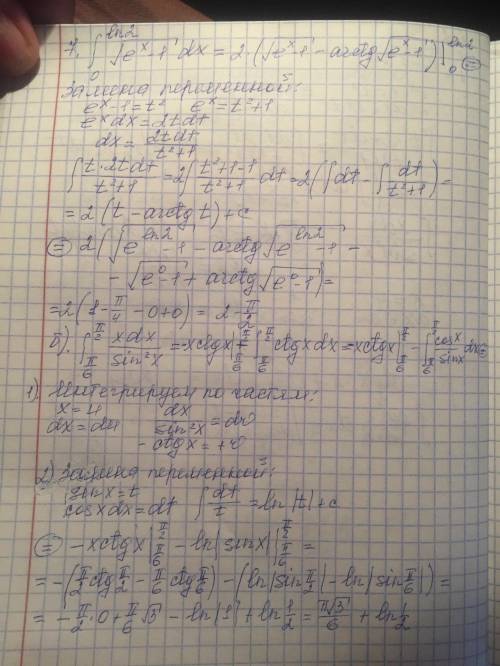 7. ∫₀^{ln2} √(eˣ-1) dx = 2·(√(eˣ-1) - arctg√(eˣ-1))|₀^{ln2} ⊜
Замена переменной:
eˣ-1=t² eˣ=t²+1
eˣdx=2tdt
dx = 2tdt/(t²+1)
∫ t·2tdt/(t²+1) = 2∫ (t²+1-1)/(t²+1) dt = 2(∫dt - ∫dt/(t²+1)) =
= 2(t-arctg t)+c
⊜ 2(√(e^{ln2}-1) - arctg√(e^{ln2}-1) -
- √(e⁰-1) + arctg√(e⁰-1)) =
= 2(1 - π/4 - 0+0) = 2 - π/2
б). ∫_{π/6}^{π/2} xdx/sin²x = -xctgx|_{π/6}^{π/2} + ∫_{π/6}^{π/2} ctgxdx = -xctgx|_{π/6}^{π/2} - ∫_{π/6}^{π/2} cosx/sinx dx ⊜
1). Интегрируем по частям:
x = u dx/sin²x = dv
dx = du
-ctgx = +v
2) Замена переменной:
sinx = t
cosxdx = dt ∫ dt/t = ln|t| + c
⊜ -xctgx|_{π/6}^{π/2} - ln|sinx||_{π/6}^{π/2} =
= -(π/2 ctg π/2 - π/6 ctg π/6) - (ln|sin π/2| - ln|sin π/6|) =
= -π/2·0 + π/6 √3 - ln|1| + ln 1/2 = π√3/6 + ln 1/2